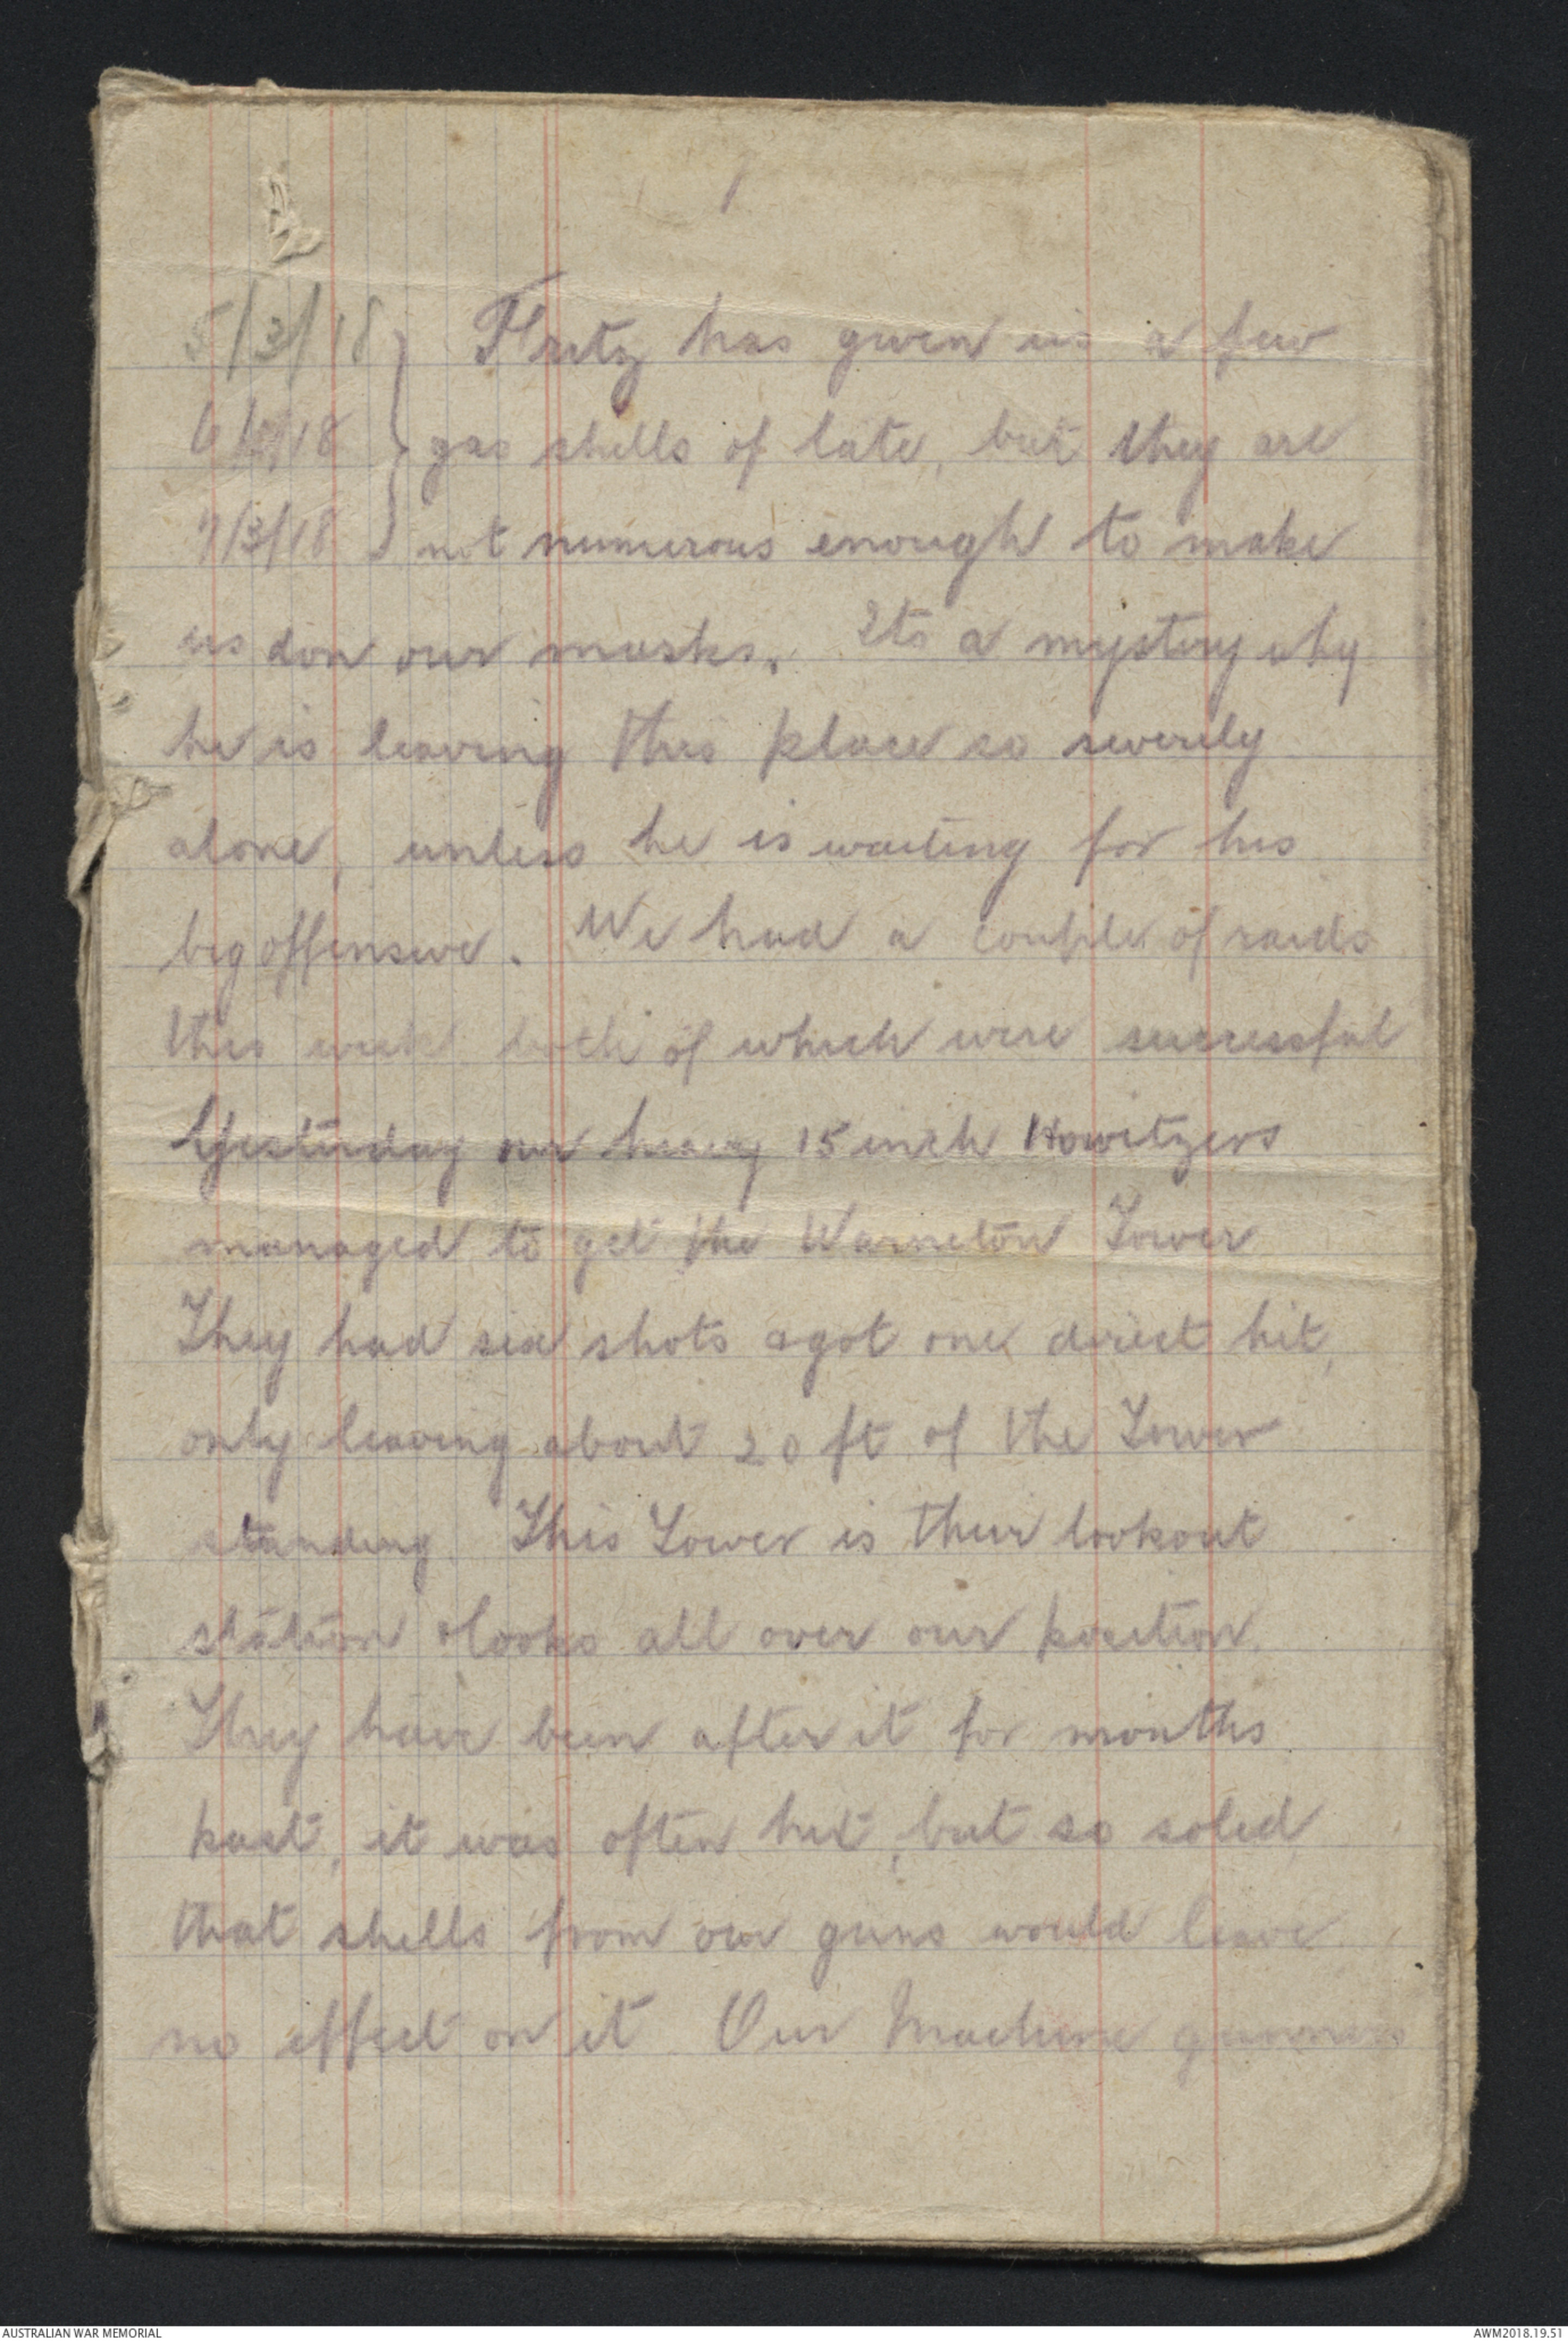 1
5/3/18 } Fritz has given us a few
6/3/18 } gas shells of late, but they are
7/3/18 } not numerous enough to make
us don our masks. Its a mystery why
he is leaving this place so severely
alone, unless he is waiting for his
big offensive. We had a couple of raids
this week both of which were successful
Yesterday our heavy 15 inch Howitzers
managed to get the Warneton Tower
They had six shots & got one direct hit,
only leaving about 20 ft of the Tower
standing. This Tower is their lookout
station & looks all over our position.
They have been after it for months
past, it was often hit, but so solid
that shells from our guns would leave
no effect on it Our Machine gunners
AUSTRALIAN WAR MEMORIAL
AWM2018.19.51